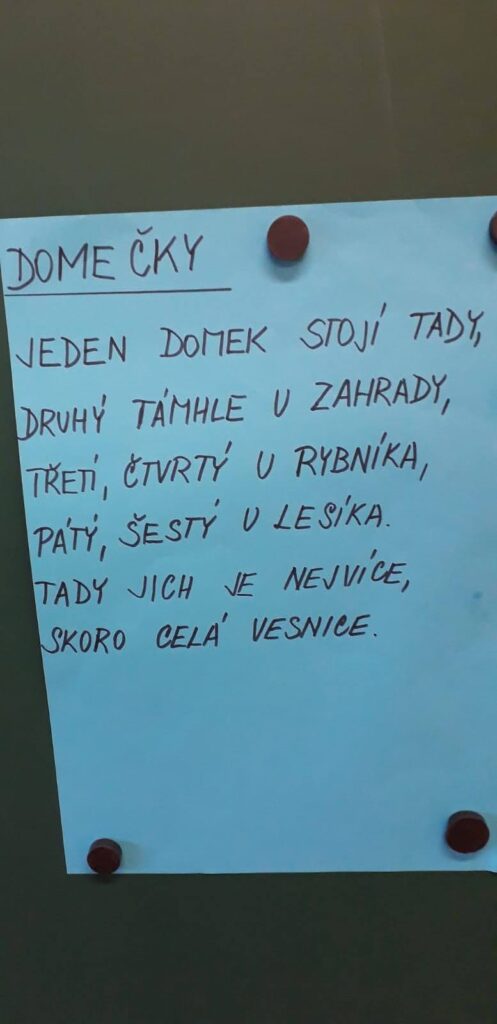 DOMEČKY
JEDEN DOMEK STOJÍ TADY,
DRUHÝ TÁMHLE U ZAHRADY,
TŘETÍ, ČTVRTÝ U RYBNÍKA,
PÁTÝ, ŠESTÝ U LESÍKA.
TADY JICH JE NEJVÍCE,
SKORO CELÁ VESNICE.